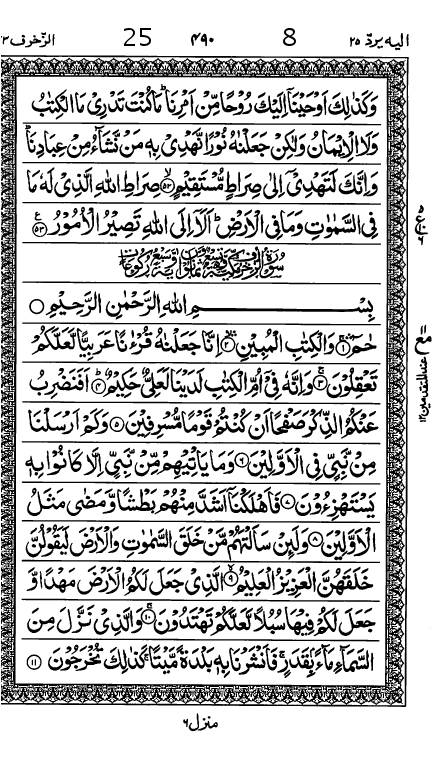 اليه يردّ ٢٥    8    ٤٩٠    25    الزّخرف ٤٣
وَكَذٰلِكَ اَوْحَيْنَاۤ اِلَيْكَ رُوْحًا مِّنْ اَمْرِنَا ؕ مَا كُنْتَ تَدْرِىْ مَا الْكِتٰبُ
وَلَا الْاِيْمَانُ وَلٰكِنْ جَعَلْنٰهُ نُوْرًا نَّهْدِىْ بِهٖ مَنْ نَّشَآءُ مِنْ عِبَادِنَا ؕ
وَاِنَّكَ لَتَهْدِىْۤ اِلٰى صِرَاطٍ مُّسْتَقِيْمٍ ۙ﴿۵۲﴾ صِرَاطِ اللّٰهِ الَّذِىْ لَهٗ مَا
فِى السَّمٰوٰتِ وَمَا فِى الْاَرْضِ ؕ اَلَاۤ اِلَى اللّٰهِ تَصِيْرُ الْاُمُوْرُ ﴿۵۳﴾
بِسْمِ اللّٰهِ الرَّحْمٰنِ الرَّحِيْمِ ○
حٰمٓ ﴿۱﴾ وَالْكِتٰبِ الْمُبِيْنِ ﴿۲﴾ اِنَّا جَعَلْنٰهُ قُرْءٰنًا عَرَبِيًّا لَّعَلَّكُمْ
تَعْقِلُوْنَ ﴿۳﴾ وَاِنَّهٗ فِىْۤ اُمِّ الْكِتٰبِ لَدَيْنَا لَعَلِىٌّ حَكِيْمٌ ﴿۴﴾ اَفَنَضْرِبُ
عَنْكُمُ الذِّكْرَ صَفْحًا اَنْ كُنْتُمْ قَوْمًا مُّسْرِفِيْنَ ﴿۵﴾ وَكَمْ اَرْسَلْنَا
مِنْ نَّبِىٍّ فِى الْاَوَّلِيْنَ ﴿۶﴾ وَمَا يَاْتِيْهِمْ مِّنْ نَّبِىٍّ اِلَّا كَانُوْا بِهٖ
يَسْتَهْزِءُوْنَ ﴿۷﴾ فَاَهْلَكْنَاۤ اَشَدَّ مِنْهُمْ بَطْشًا وَّمَضٰى مَثَلُ
الْاَوَّلِيْنَ ﴿۸﴾ وَلَئِنْ سَاَلْتَهُمْ مَّنْ خَلَقَ السَّمٰوٰتِ وَالْاَرْضَ لَيَقُوْلُنَّ
خَلَقَهُنَّ الْعَزِيْزُ الْعَلِيْمُ ۙ﴿۹﴾ الَّذِىْ جَعَلَ لَكُمُ الْاَرْضَ مَهْدًا وَّ
جَعَلَ لَكُمْ فِيْهَا سُبُلًا لَّعَلَّكُمْ تَهْتَدُوْنَ ۚ﴿۱۰﴾ وَالَّذِىْ نَزَّلَ مِنَ
السَّمَآءِ مَآءًۢ بِقَدَرٍ ۚ فَاَنْشَرْنَا بِهٖ بَلْدَةً مَّيْتًا ۚ كَذٰلِكَ تُخْرَجُوْنَ ﴿۱۱﴾
منزل ٦